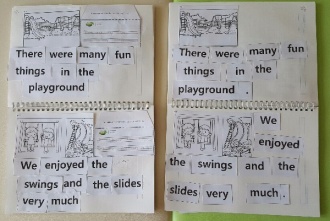 There were many fun
things in the
playground
We enjoyed the
swings and the slides
very much
There were many fun
things in the
playground .
We
enjoyed
the swings and the
slides very much .